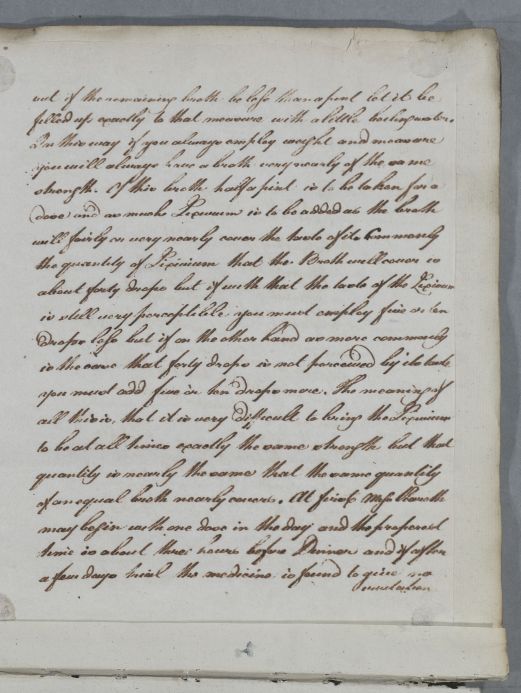 out if the remaining broth be less than a pint let it be
filled up exactly to that measure with a little boiling water.
In this way if you always employ weight and measure
you will always have a broth very nearly of the same
strength. Of this broth half a pint is to be taken for a
dose and as much Lixivium is to be added as the broth
will fairly or very nearly cover the taste of its Commonly
the quantity of Lixivium that the Broth will cover is
about forty drops but if with that the taste of the Lixivium
is still very perceptible you must employ five or ten
drops less but if on the other hand as more commonly
is the case that forty drops is not perceived by its taste
you must add five or ten drops more. The meaning of
all this is, that it is very difficult to bring the Lixivium
to be at all times exactly the same strength but that
quantity is nearly the same that the same quantity
of an equal broth nearly covers. At first Miss
may begin with one dose in the day and the properest
time is about three hours before Dinner and if after
a few days trial the medicine is found to give no